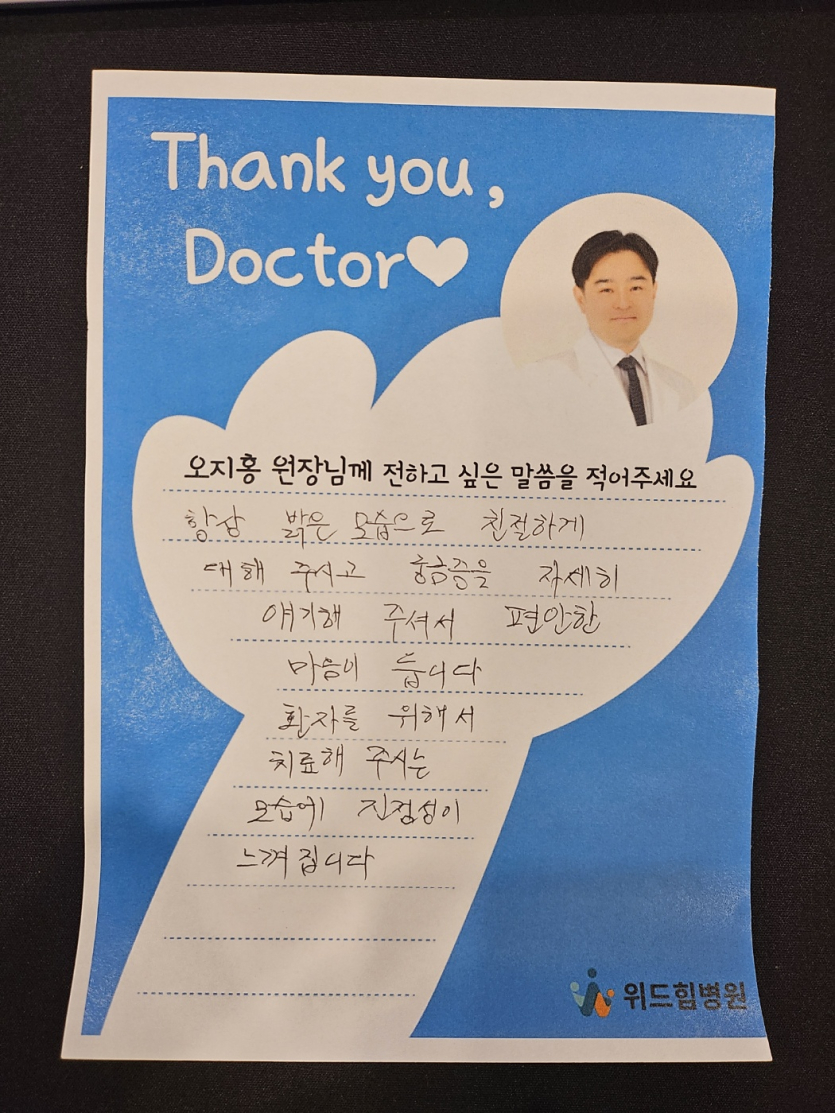 Thank you,
Doctor♥
오지홍 원장님께 전하고 싶은 말씀을 적어주세요
항상 밝은 모습으로 친절하게
대해 주시고 궁금증을 자세히
얘기해 주셔서 편안한
마음이 듭니다
환자를 위해서
치료해 주시는
모습에 진정성이
느껴 집니다
위드힘병원